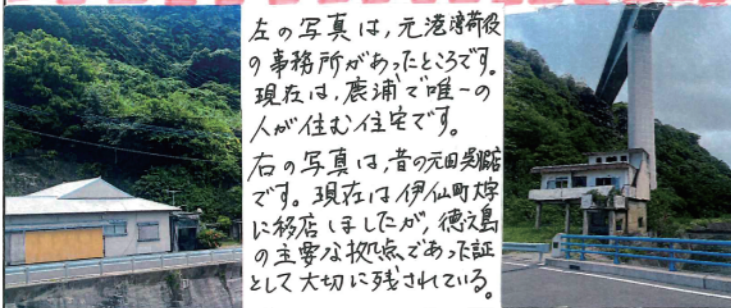 左の写真は,元港湾荷役
の事務所があったところです。
現在は,鹿浦で唯一の
人が住む住宅です。
右の写真は,昔の元田呉服店
です。現在は伊仙町大字
に移店しましたが,徳之島
の主要な拠点であった証
として大切に残されている。